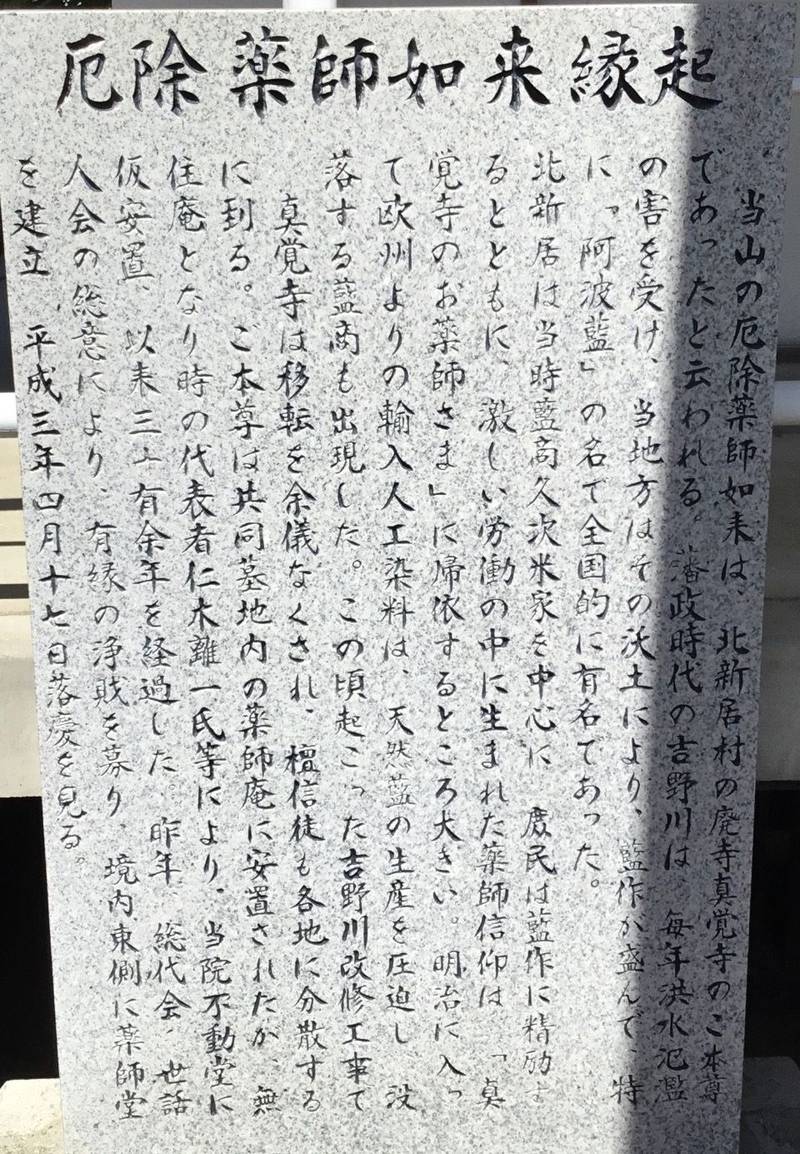 厄除薬師如来縁起
当山の厄除薬師如来は、北新居村の廃寺真覚寺のご本尊
であったと云われる。藩政時代の吉野川は、毎年洪水氾濫
の害を受け、当地方はその沃土により、藍作が盛んで、特
に「阿波藍」の名で全国的に有名であった。
北新居は当時藍商久次米家を中心に、庶民は藍作に精励す
るとともに、激しい労働の中に生まれた薬師信仰は、「真
覚寺のお薬師さま」に帰依するところ大きい。明治に入っ
て欧州よりの輸入人工染料は、天然藍の生産を圧迫し、没
落する藍商も出現した。この頃起こった吉野川改修工事で
真覚寺は移転を余儀なくされ、檀信徒も各地に分散する
に到る。ご本尊は共同墓地内の薬師庵に安置されたが、無
住庵となり時の代表者仁木離一氏等により、当院不動堂に
仮安置、以来三十有余年を経過した。昨年、総代会、世話
人会の総意により、有縁の浄財を募り、境内東側に薬師堂
を建立、平成三年四月十七日落慶を見る。